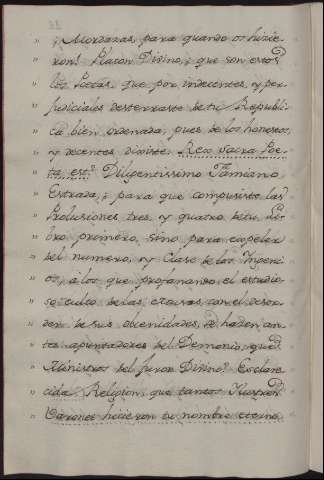 „ ¡ Mordazas, para quando os hizie-
„ ron! Platon Divino, ¿ que son estos
„ los Poetas, que por indecentes, y per-
„ judiciales desterraste de tu Republi-
„ ca bien ordenada, pues de los honestos,
„ y decentes dixiste. Res sacra Poe-
„ ta est? Diligentissimo Famiano
„ Estrada, ¿ para que compusiste las
„ Prolusiones, tres, y quatro de tu Li-
„ bro primero, sino para expeler
„ del numero, y Clase de los Ingeni-
„ os, á los que profanando el estudio
„ so culto de las, con el desor-
„ den de sus obcenidades, se hacen an-
„ tes apuntadores del Demonio, que
„ Ministros del furor Divino? Esclare-
„ cida Religion, que tantos
„ Varones hicieron tu nombre eterno